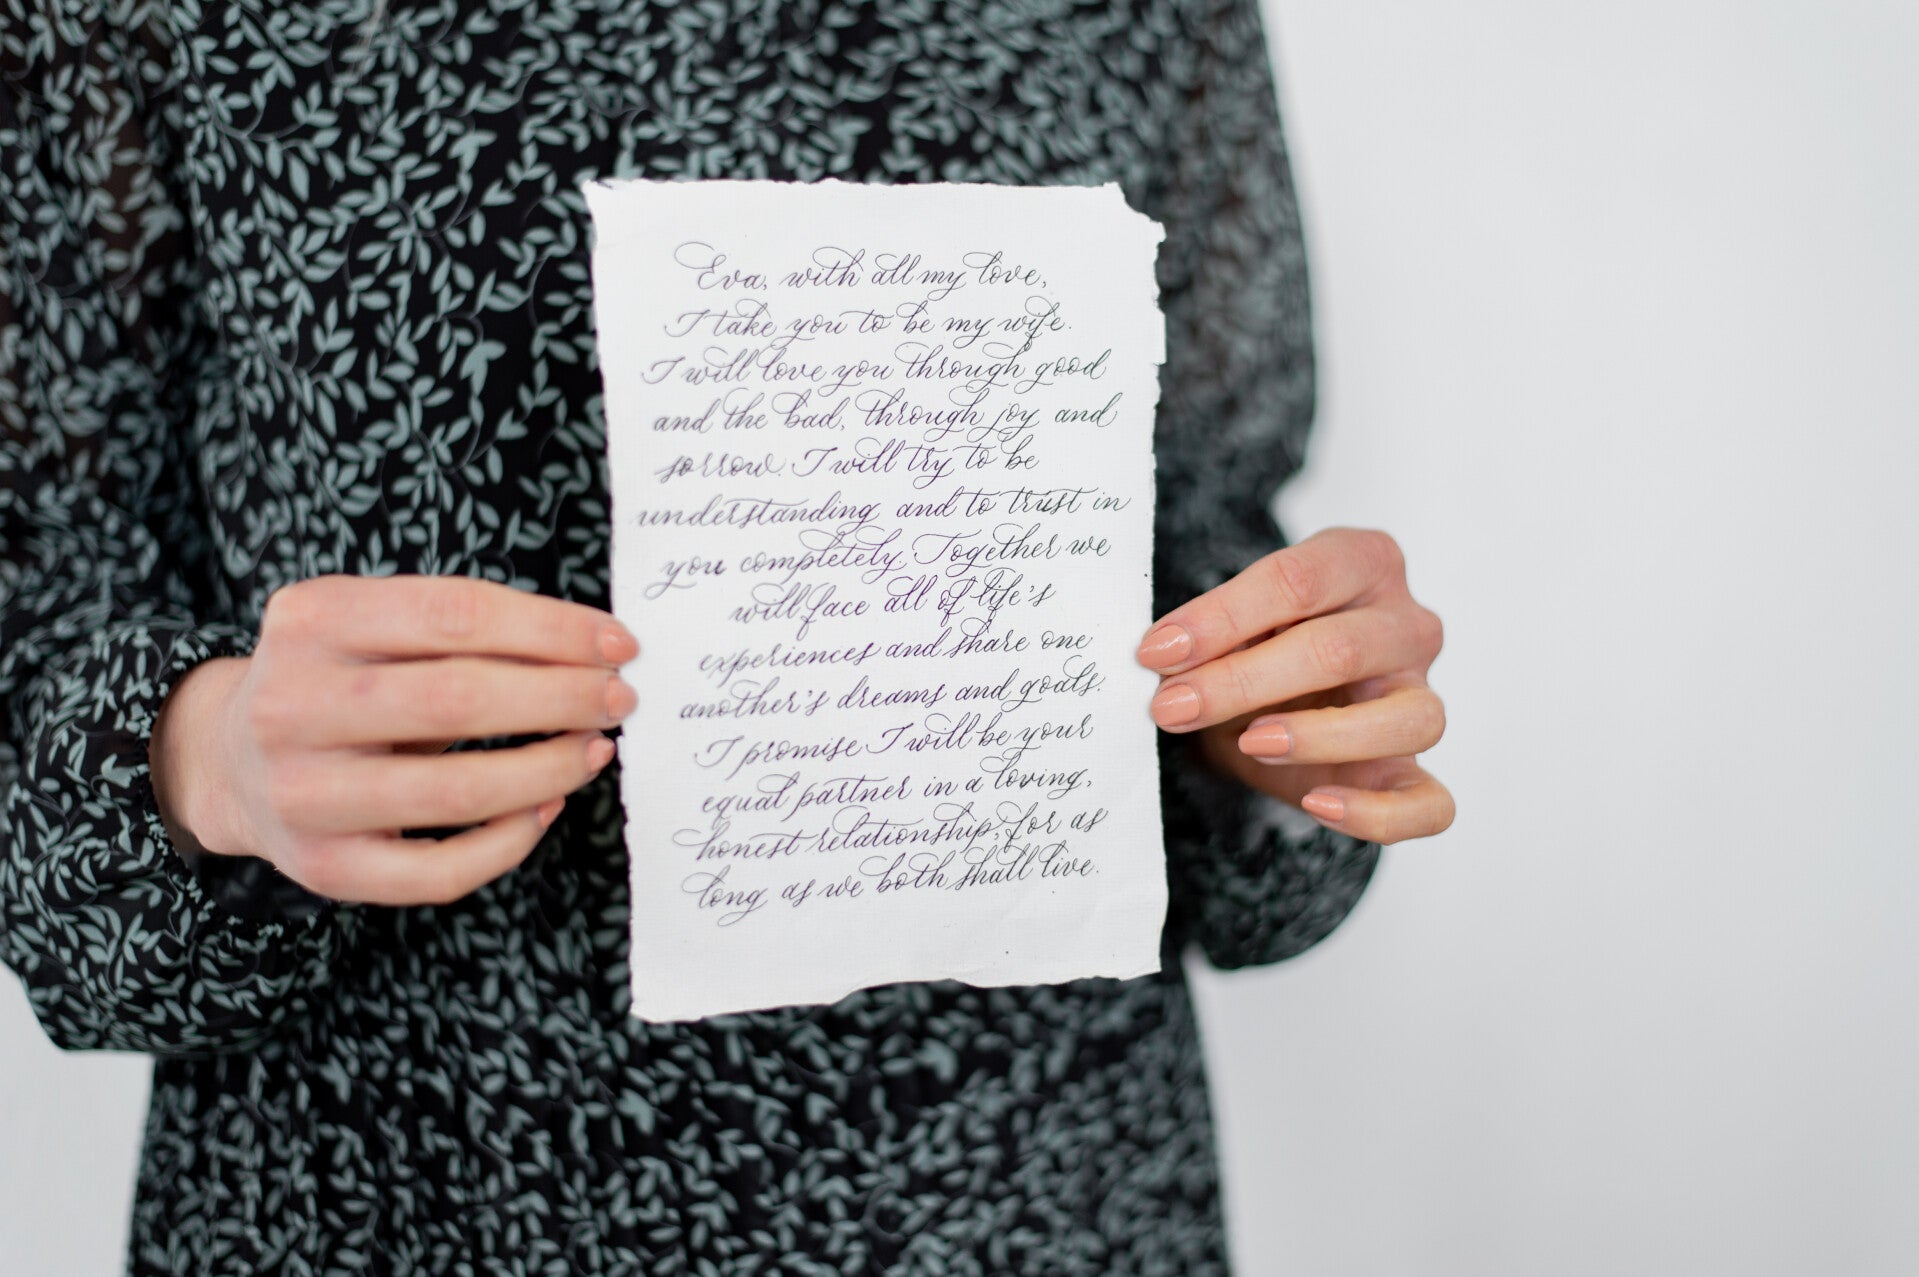 Eva, with all my love,
I take you to be my wife.
I will love you through good
and the bad, through joy and
sorrow. I will try to be
understanding and to trust in
you completely. Together we
will face all of life's
experiences and share one
another's dreams and goals.
I promise I will be your
equal partner in a loving,
honest relationship, for as
long as we both shall live.